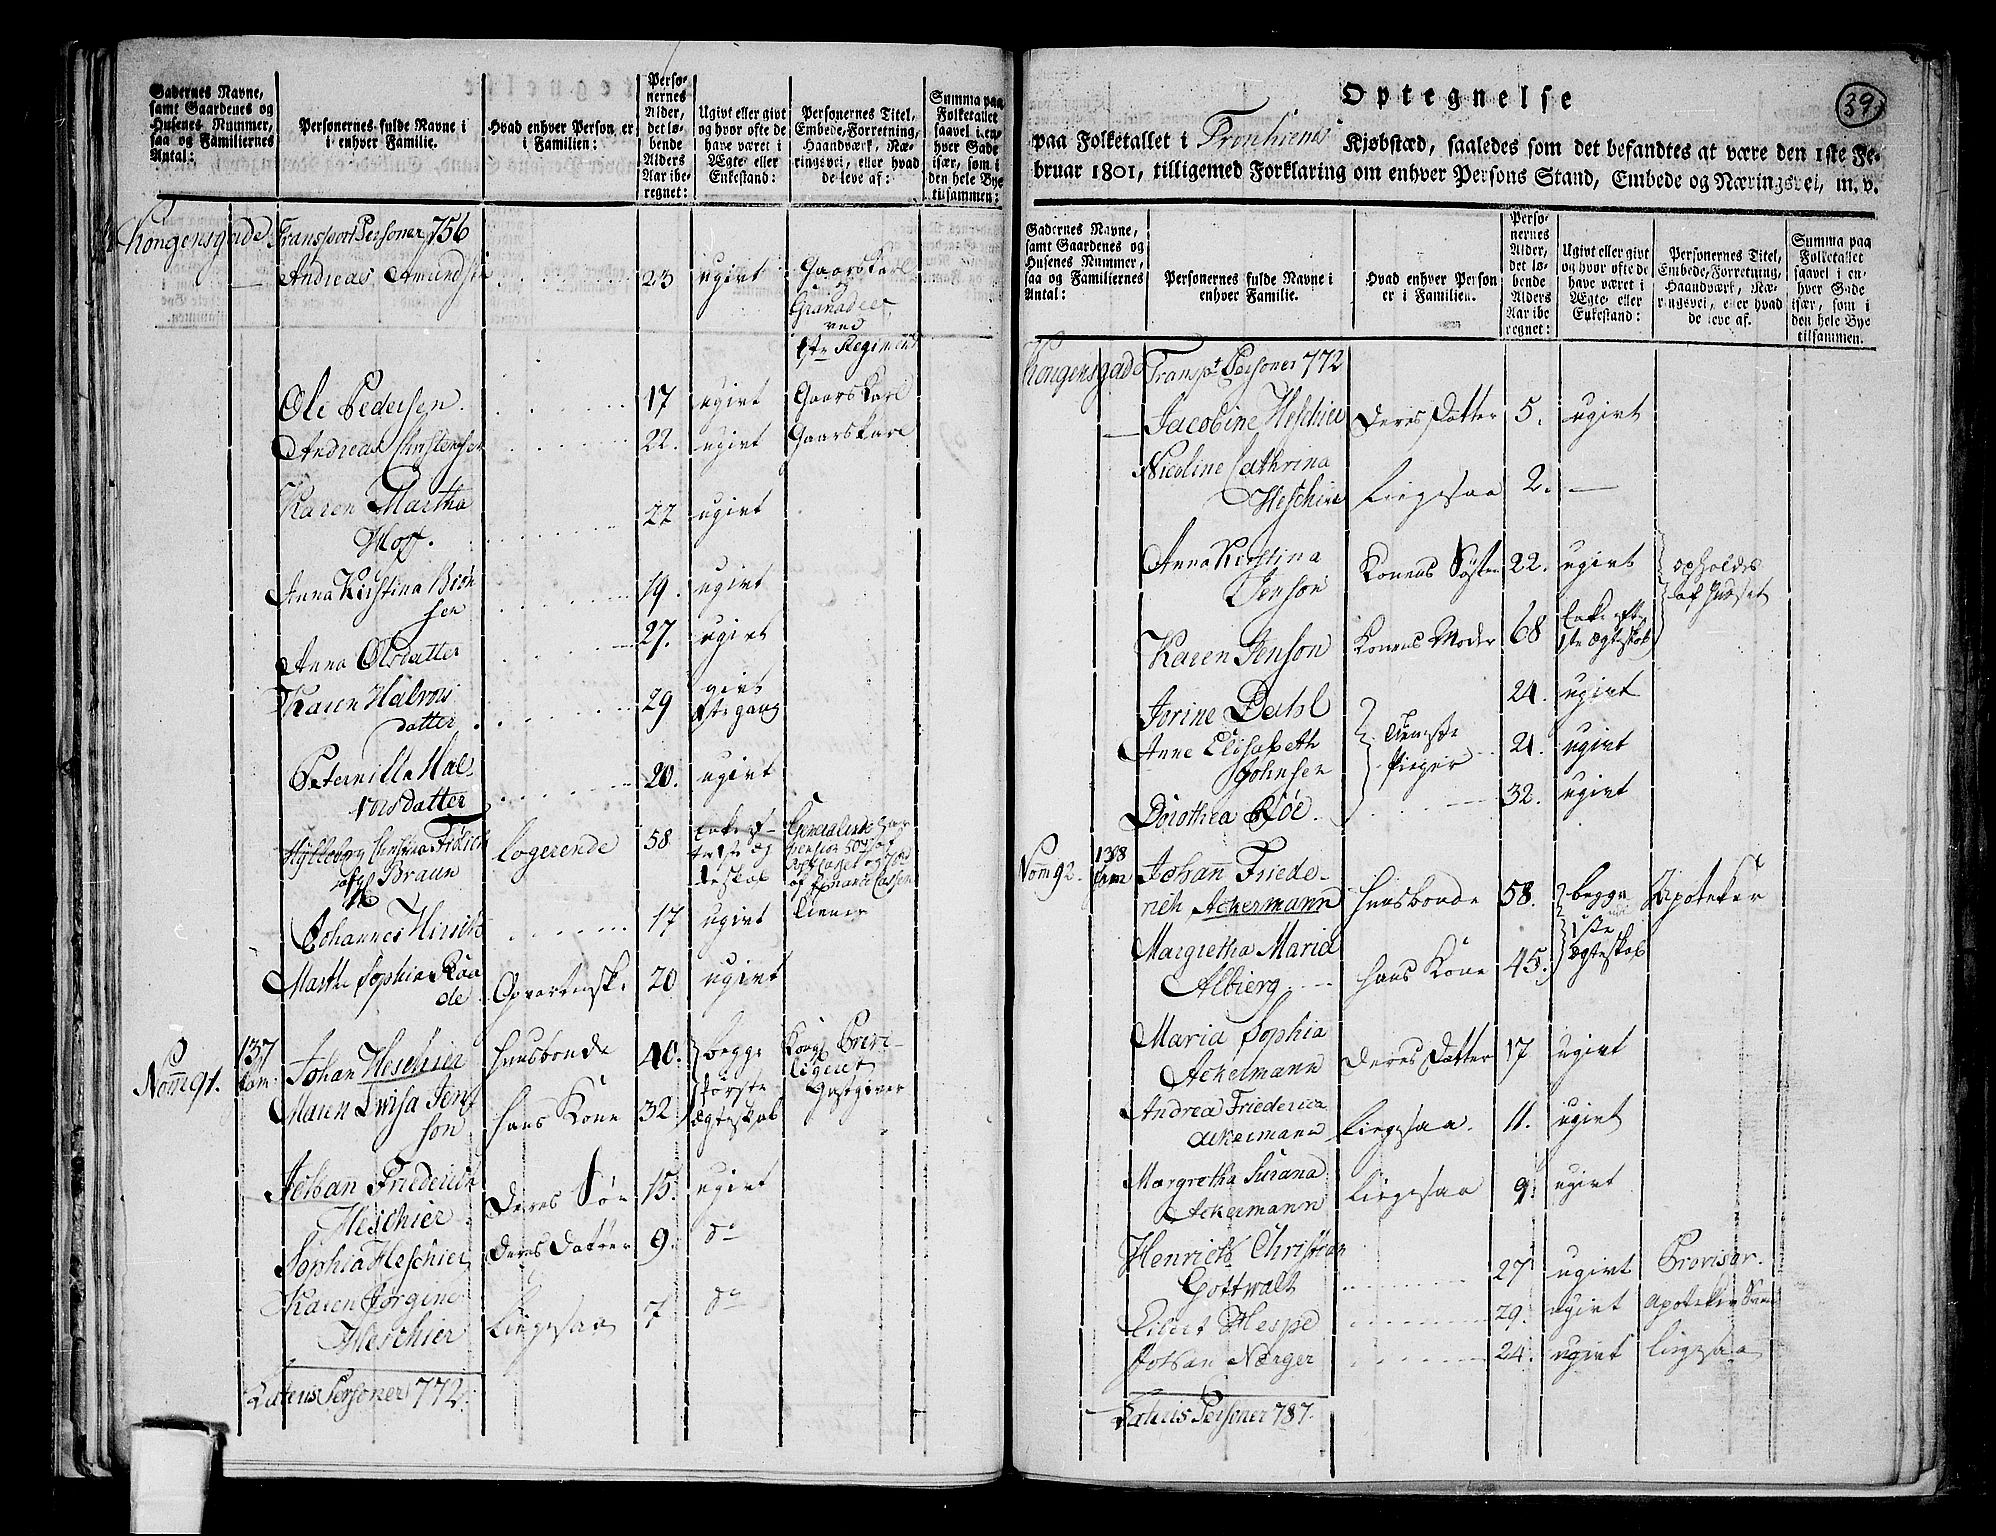 Gadernes Navne, samt Gaardenes og Husenes Nummer, saa og Familiernes Antal:
Personernes fulde Navne i enhver Familie.
Hvad enhver Person er i Familien:
Personernes Alder, det løbende Alders Aar iberegnet:
Ugivt eller givt og hvor ofte de have været i Ægte eller Enkestand:
Personernes Titel, Embede, Forretning, Haandværk, Næringsvei, eller hvad de leve af:
Summa paa Folketallet saavel i enhver Gade især, som i den hele Bye tilsammen:
Kongensgade Transport Personer 756
Andreas Amundsen 23 ugivt Gaarskarl og Granadeer ved 1ste Regiment
Ole Pedersen 17 ugivt Gaarskarl
Andreas Christensen 22. ugivt Gaarskarl
Karen Martha
Hoff. 22 ugivt
Anna Kirstina Biön
sen 19. ugivt
Anna Olsdatter 27. ugivt
Karen Halvors
datter 29 givt 1ste gang
Peternille Hal
vorsdatter 20. ugivt
Braun logerende 58
Johannes 17 ugivt tiener
Marthe Sophia Raa
de Opvartersk. 20 ugivt
Nom 91. 137 Fam: Johan Heschier Huusbonde 40. begge første Ægteskab Kong: Privi-
ligeret
Gastgiver
Maren Lwisa Jens
son hans Kone 32
Johan Friderich
Heschier Deres Søn 15. ugivt
Sophia Heschier Deres Datter 9. do
Karen Jorgine
Heschier Ligesaa 7. do
Lateris Personer 772.
39
Optegnelse
paa Folketallet i Tronhiems Kjøbstæd, saaledes som det befandtes at være den 1ste Fe-
bruar 1801, tilligemed Forklaring om enhver Persons Stand, Embede og Næringsvei, m. v.
Gadernes Navne, samt Gaardenes og Husenes Nummer, saa og Familiernes Antal:
Personernes fulde Navne i enhver Familie.
Hvad enhver Person er i Familien:
Personernes Alder, det løbende Alders Aar iberegnet:
Ugivt eller givt og hvor ofte de have været i Ægte eller Enkestand:
Personernes Titel, Embede, Forretning, Haandværk, Næringsvei, eller hvad de leve af.
Summa paa Folketallet saavel i enhver Gade især, som i den hele Bye tilsammen.
Kongensgade Transpt Personer 772
Jacobine Heschier Deres Datter 5. ugivt
Nicoline Cathrina
Heschier Ligesaa 2. —
Anna Kirstina
Jenson Konens Søster 22. ugivt opholdes
af Huuset
Karen Jenson Konens Moder 68 Enke eft 1ste Ægteskab
Jorine Dahl 24. ugivt
Anne Elisabeth
Johnsen Tieneste
Piger 21. ugivt
Dorothea Röe. 32. ugivt
Nom 92. 138 Fam Johan Friede-
rich Ackermann Huusbonde 58. begge 1ste Ægteskab Apoteker
Margretha Maria
Albierg hans Kone 45.
Maria Sophia
Ackelmann Deres Datter 17 ugivt
Andrea Friederica
Ackermann Ligesaa. 11. ugivt
Margretha Susana
Ackermann Ligesaa 9. ugivt
Henrich Christian
Gottwalt 27 ugivt Provisor.
Hespe 29. ugivt Apoteker Svend
Johan Nerger 24. ugivt Ligesaa
Lateris Personer 787.